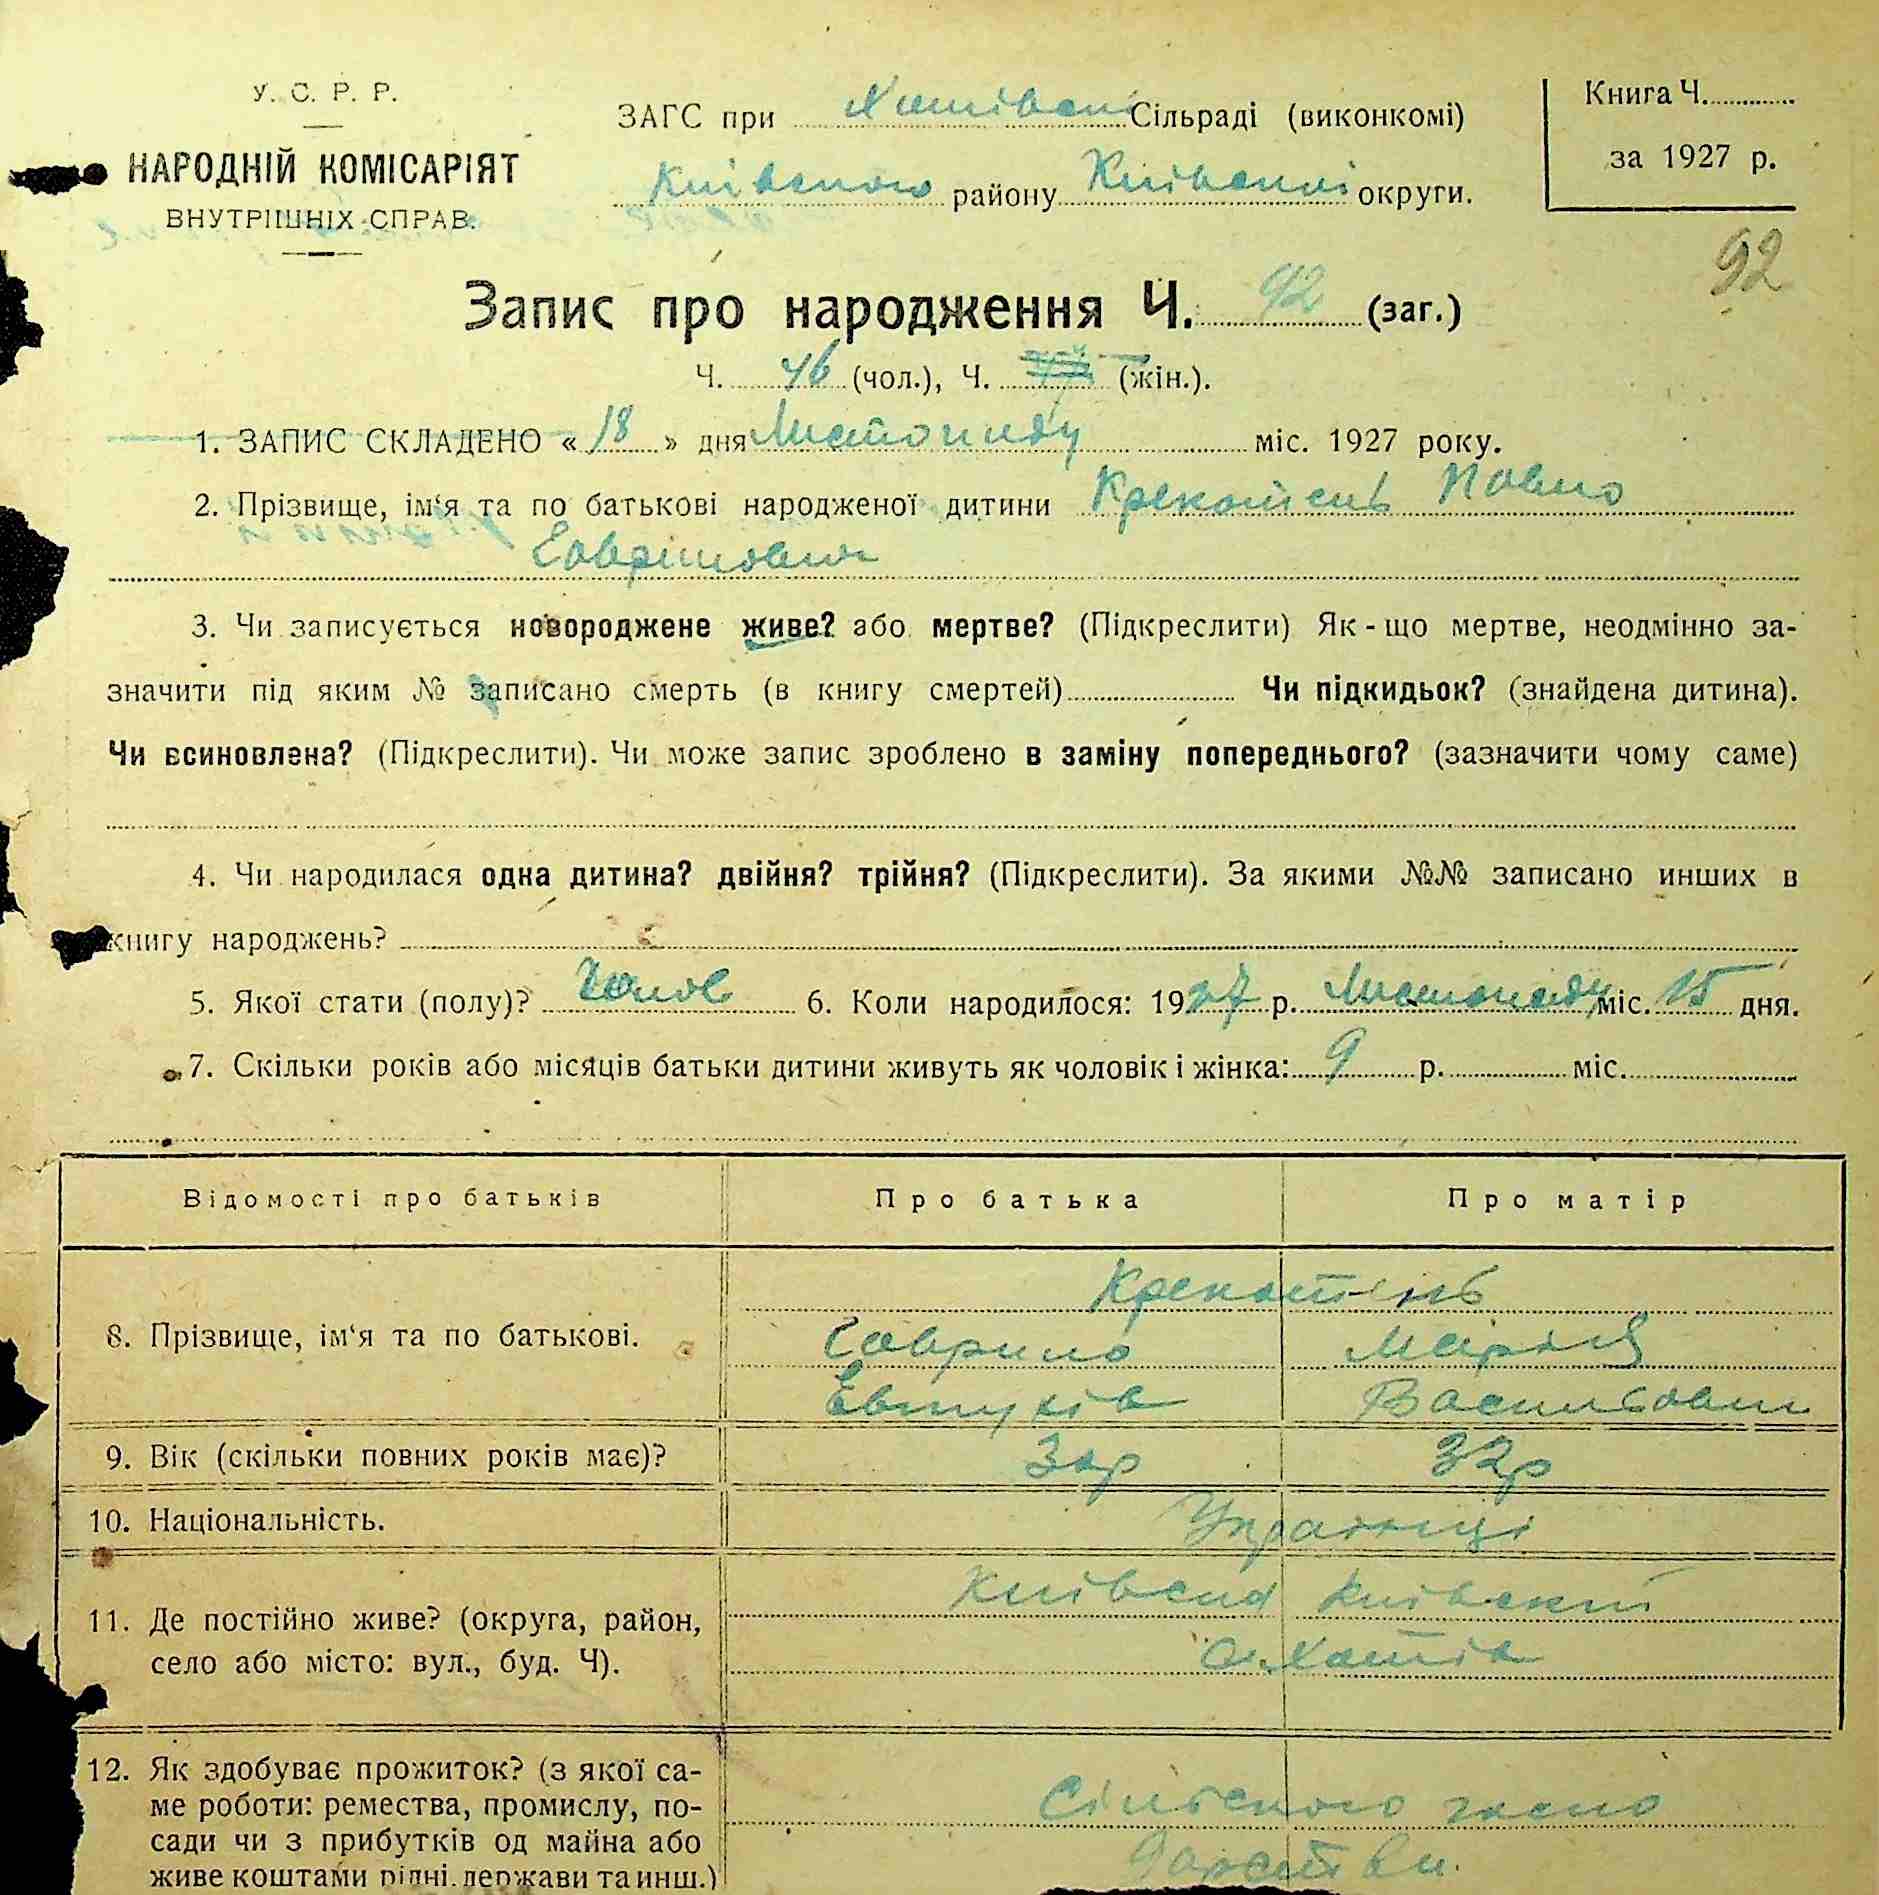 У. С. Р. Р.
НАРОДНІЙ КОМІСАРІЯТ
ВНУТРІШНІХ СПРАВ.
ЗАГС при Хотівські Сільраді (виконкомі)
Київського району Київської округи.
Книга Ч.
за 1927 р.
92
Запис про народження Ч. 92 (заг.)
Ч. 46 (чол.), Ч. (жін.).
1. ЗАПИС СКЛАДЕНО « 18 » дня Листопаду міс. 1927 року.
2. Прізвище, ім‘я та по батькові народженої дитини Крекотень Павло
Гаврилович
3. Чи записується новороджене живе? або мертве? (Підкреслити) Як-що мертве, неодмінно за-
значити під яким № записано смерть (в книгу смертей) Чи підкидьок? (знайдена дитина).
Чи всиновлена? (Підкреслити). Чи може запис зроблено в заміну попереднього? (зазначити чому саме)
4. Чи народилася одна дитина? двійня? трійня? (Підкреслити). За якими №№ записано инших в
книгу народжень?
5. Якої стати (полу)? Чолов 6. Коли народилося: 1927 р. Листопаду міс. 15 дня.
7. Скільки років або місяців батьки дитини живуть як чоловік і жінка: 9 р. міс.
Відомості про батьків Про батька Про матір
8. Прізвище, ім‘я та по батькові.
Крекотень
Гаврило Марія
Евтухів Василівни
9. Вік (скільки повних років має)? 30р 32р
10. Національність. Українці
11. Де постійно живе? (округа, район,
село або місто: вул., буд. Ч).
Київська Київский
с. Хотів
12. Як здобуває прожиток? (з якої са-
ме роботи: ремества, промислу, по-
сади чи з прибутків од майна або
живе коштами рідні, держави та инш.)
Сільського госпо
дарства.